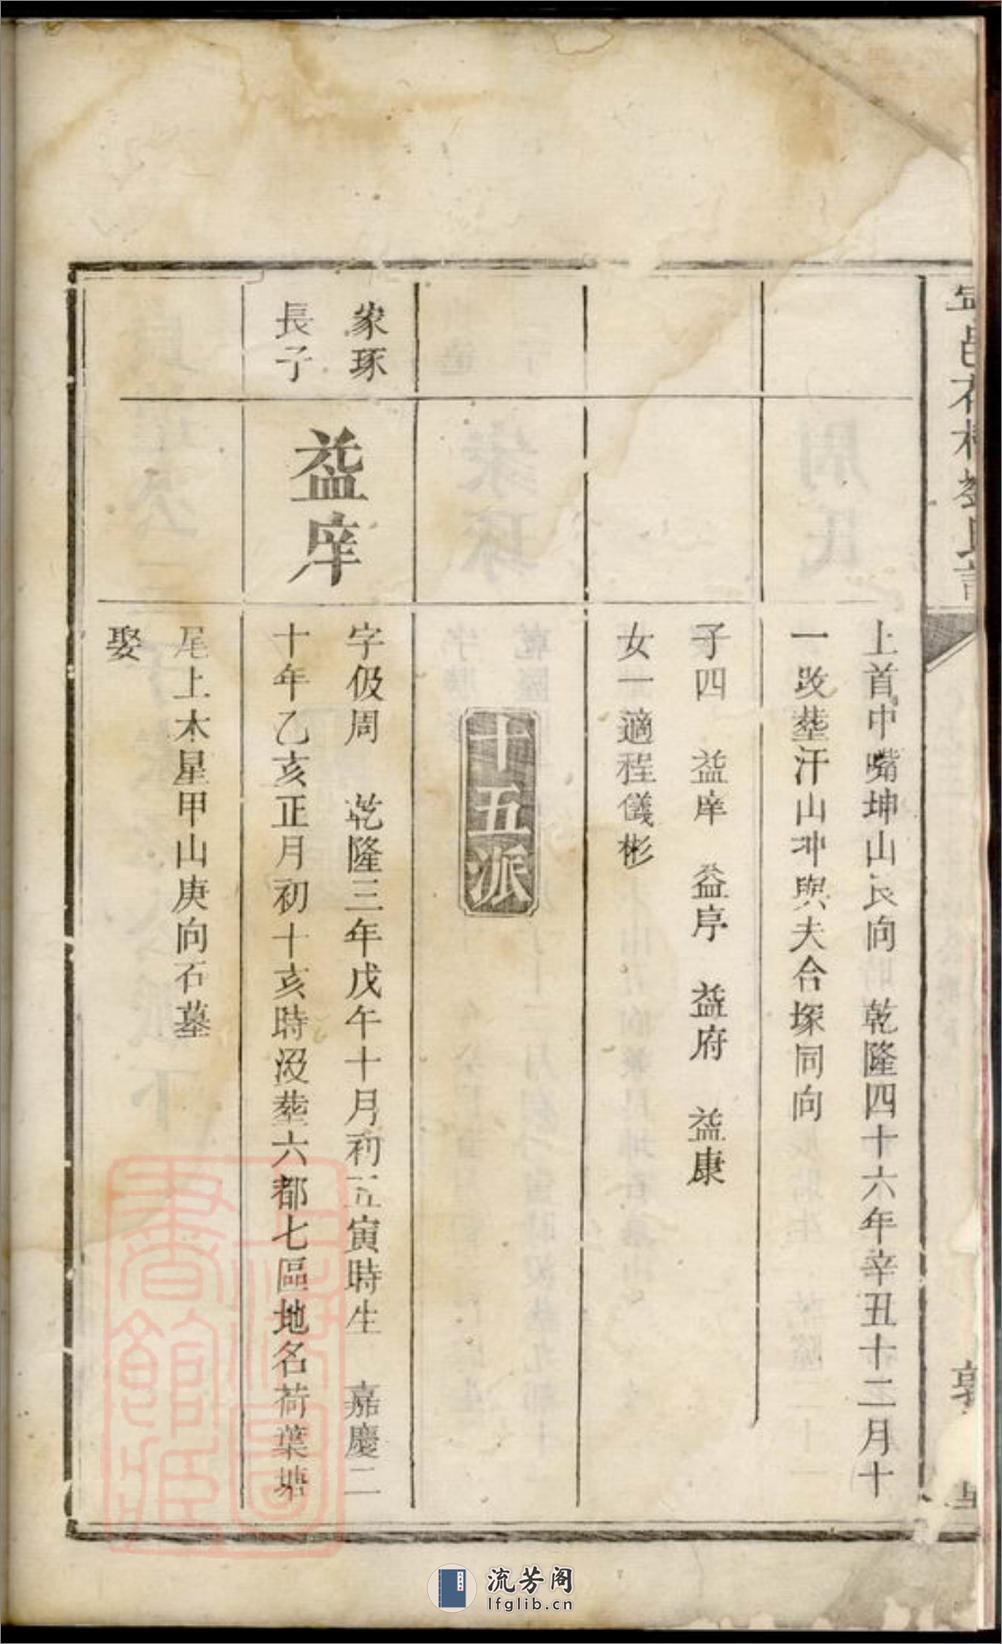 上首中嘴坤山艮向 乾隆四十六年辛丑十二月十
一改塟汗山坤與夫合塚同向
子四 益庠 益序 益府 益康
女一適程儀彬
十五派
家琢
長子
益庠
字伋周 乾隆三年戊午十月初五寅時生 嘉慶二
十年乙亥正月初十亥時沒塟六都七區地名荷葉塘
尾上木星甲山庚向石墓
娶
上海圖書館藏
流芳阁
lfglib.cn